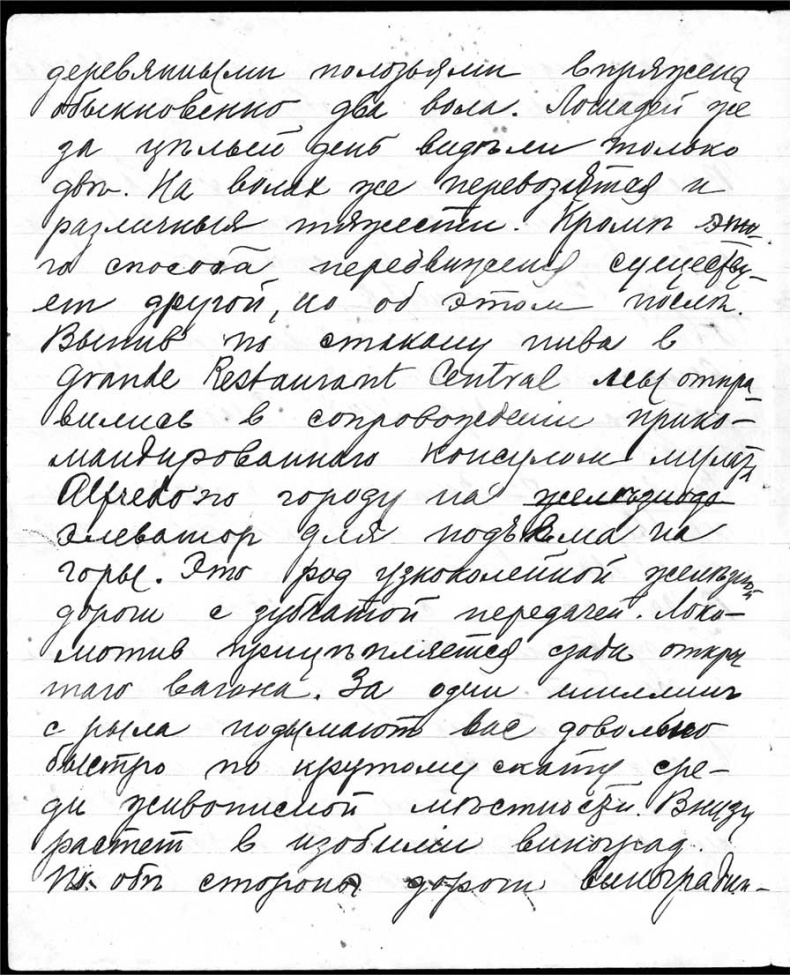 деревянными полозьями впряжено
обыкновенно два вола. Лошадей же
за цѣлый день видѣли только
двѣ. На волах же перевозятся и
различныя тяжести. Кромѣ это-
го способа передвиженія существу-
ет другой, но об этом послѣ.
Выпив по стакану пива в
Grande Restaurant Central мы отпра-
вились в сопровожденіи прико-
мандированнаго консулом мулата
Alfredo по городу на железнодо
элеватор для подъема на
горы. Это род узкоколейной желѣзной
дороги с зубчатой передачей. Локо-
мотив прицѣпляется сзади откры
таго вагона. За один шиллинг
с рыла подымают вас довольно
быстро по крутому скату сре-
ди живописной мѣстности. Внизу
растет в изобиліи виноград.
По обѣ стороны дороги виноградни-